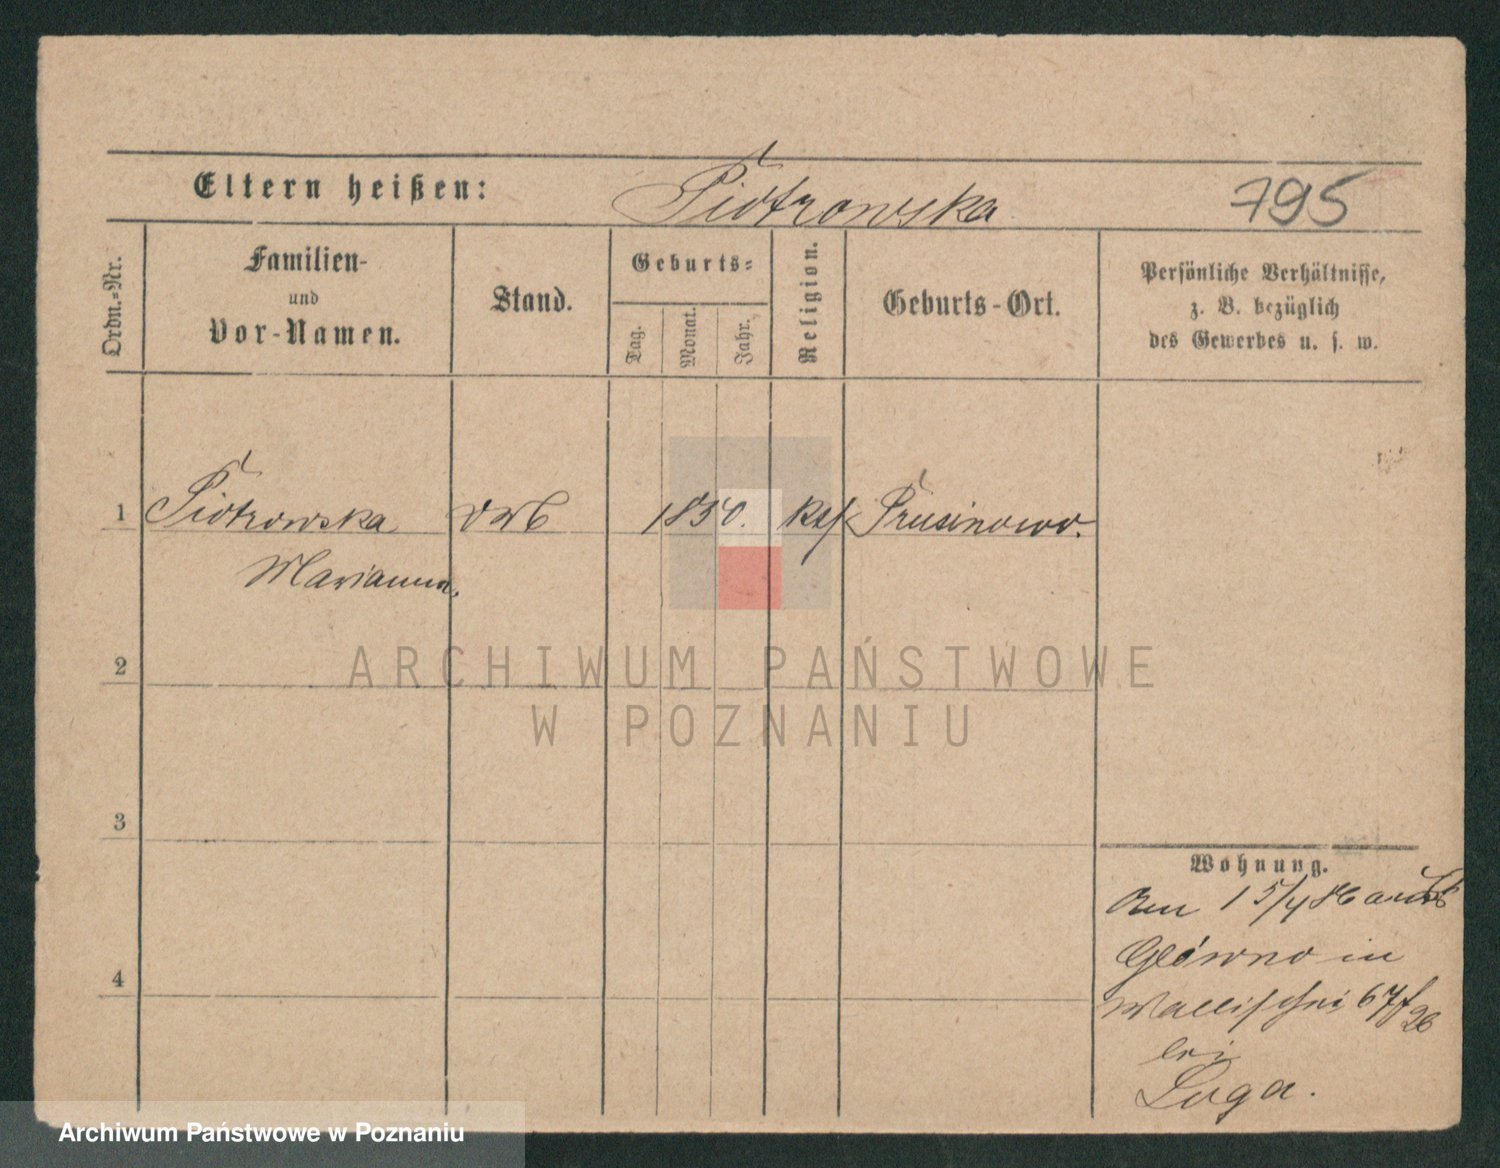 Eltern heißen: Piotrowska 795
Ordn.-Nr.
Familien-
und
Vor-Namen.
Stand.
Geburts-
Tag.
Monat.
Jahr.
Religion.
Geburts-Ort.
Persönliche Verhältnisse,
z. B. bezüglich
des Gewerbes u. s. w.
1 Piotrowska 1850. Prusinowo.
Marianna.
2
3
4
ARCHIWUM PAŃSTWOWE
W POZNANIU
Wohnung.
15/4
Główno in
Wallischei 67
bei
Luga.
Archiwum Państwowe w Poznaniu